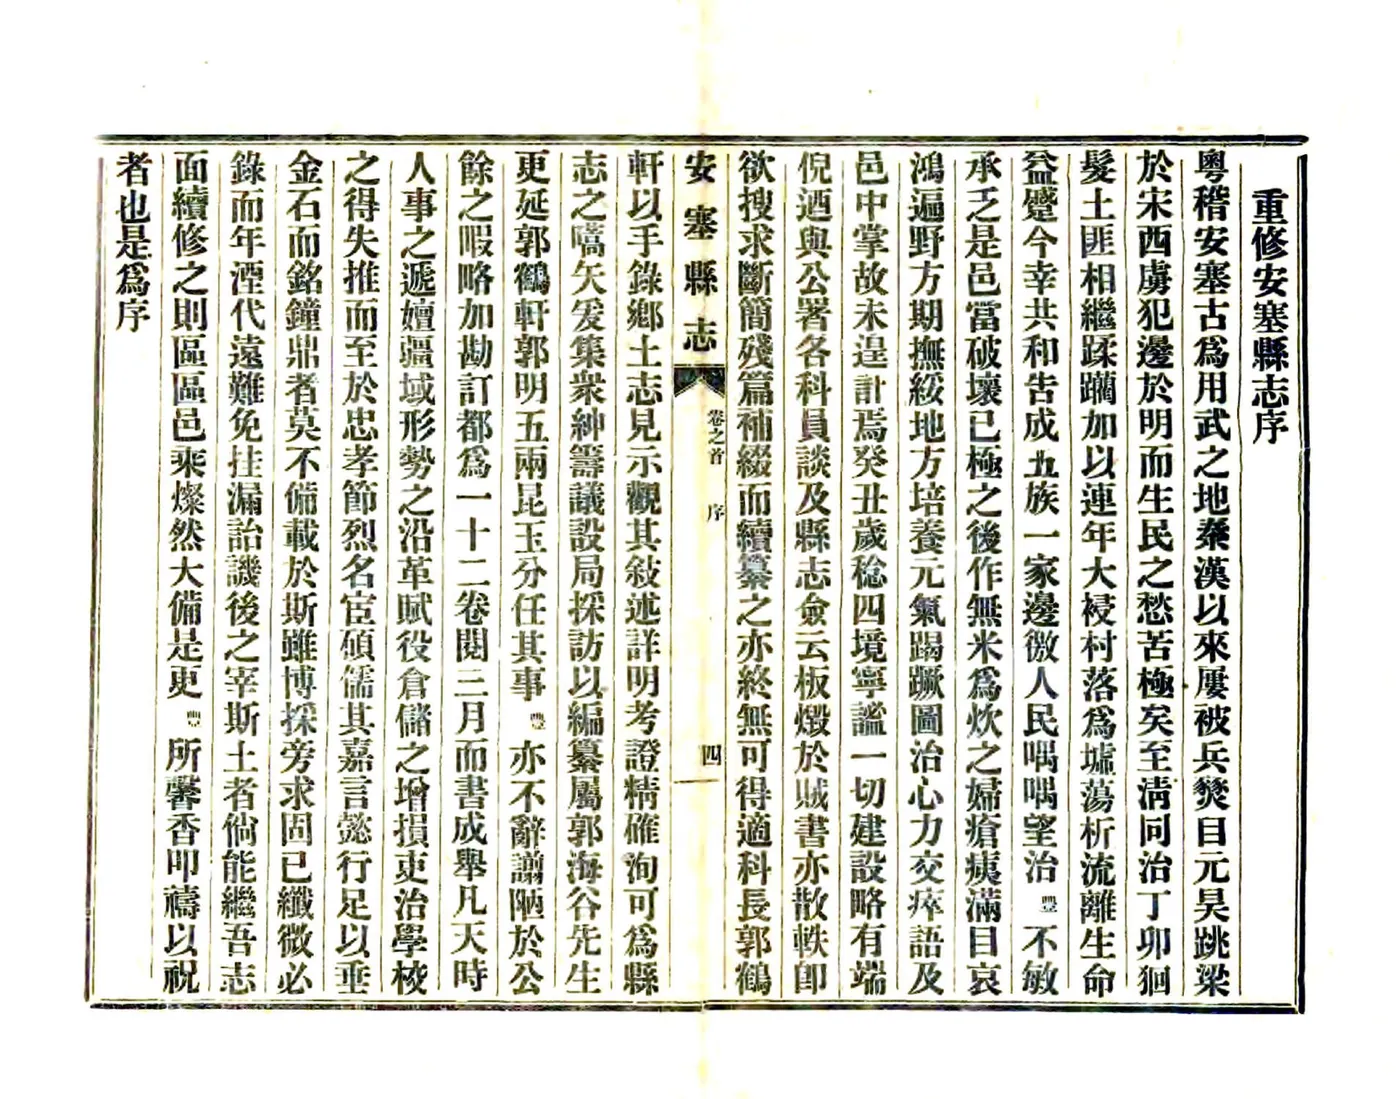 重修安塞縣志序
粵稽安塞古爲用武之地秦漢以來屢被兵燹自元昊跳梁
於宋西虜犯邊於明而生民之愁苦極矣至淸同治丁卯狪
髮土匪相繼蹂躪加以連年大祲村落爲墟蕩析流離生命
益蹙今幸共和吿成五族一家邊微人民喁喁望治豐不敏
承乏是邑當破壞已極之後作無米爲炊之婦瘡痍滿目哀
鴻遍野方期撫綏地方培養元氣蹋蹶圖治心力交瘁語及
邑中掌故未遑計焉癸丑歲稔四境寧謐一切建設略有端
倪迺與公署各科員談及縣志僉云板燬於賊書亦散軼卽
欲搜求斷簡殘篇補綴而續纂之亦終無可得適科長郭鶴
安塞縣志
卷之首
序
四
軒以手錄鄉土志見示觀其敍述詳明考證精確洵可爲縣
志之嚆矢爰集衆紳籌議設局採訪以編纂屬郭海谷先生
更延郭鶴軒郭明五兩昆玉分任其事豐亦不辭謭陋於公
餘之暇略加勘訂都爲一十二卷閱三月而書成舉凡天時
人事之遞嬗疆域形勢之沿革賦役倉儲之增損吏治學校
之得失推而至於忠孝節烈名宦碩儒其嘉言懿行足以垂
金石而銘鐘鼎者莫不備載於斯雖博採旁求固已纖微必
錄而年湮代遠難免挂漏詒譏後之宰斯土者倘能繼吾志
面續修之則區區邑乘燦然大備是更豐所馨香叩禱以祝
者也是爲序